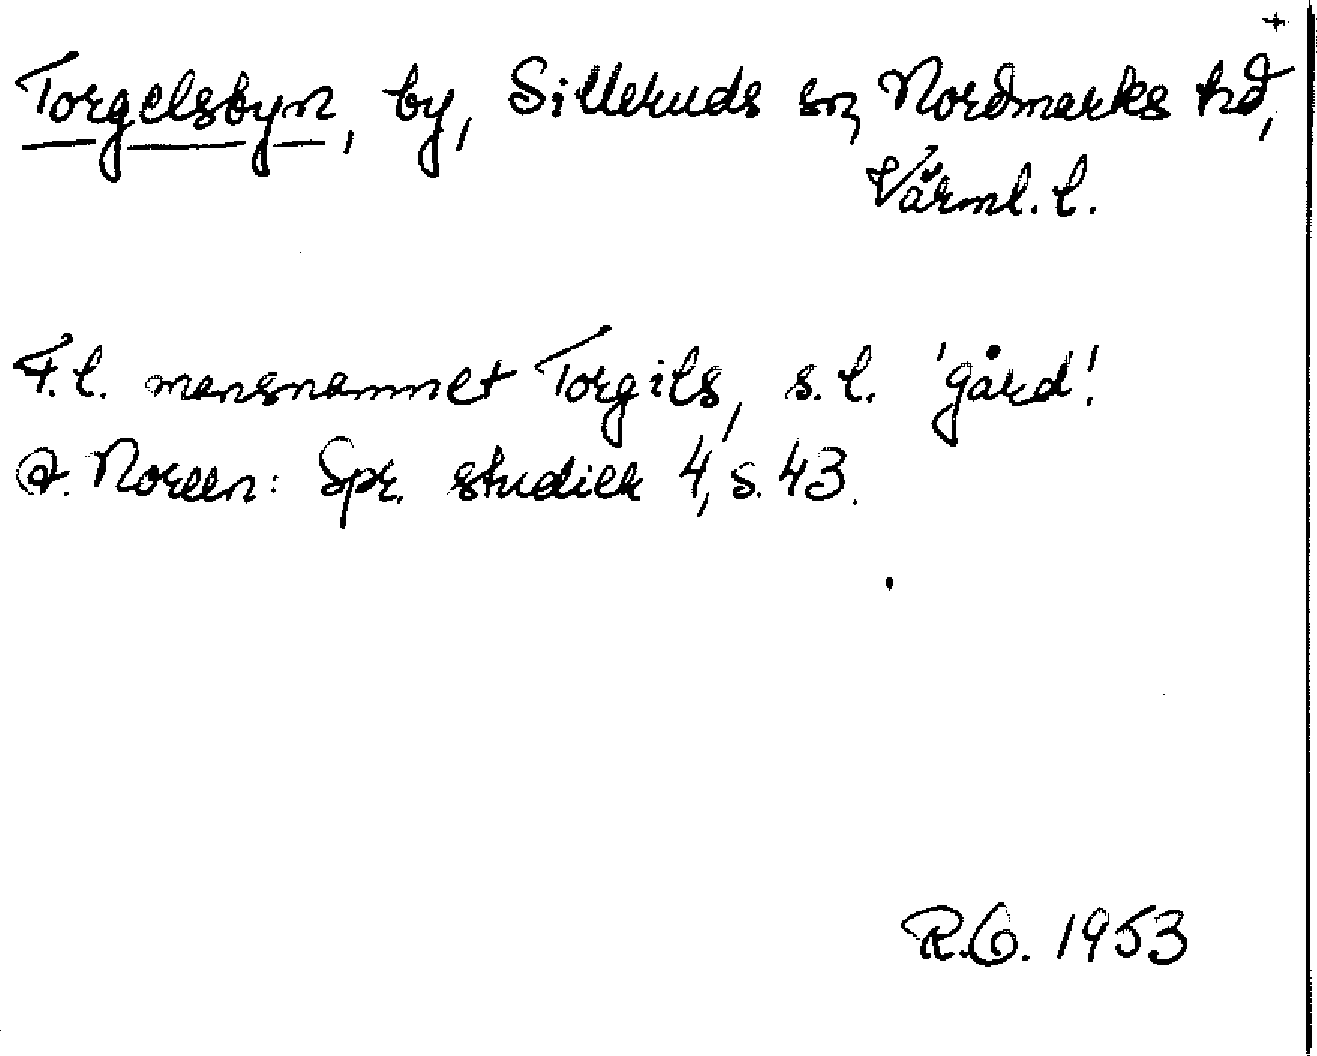 +
Torgelsbyn, by, Silleruds sn, Nordmarks hd,
Värml. l.
F.l. mansnamnet Torgils, s.l. 'gård'.
A. Noreen: Spr. studier 4, s. 43.
R.O. 1953